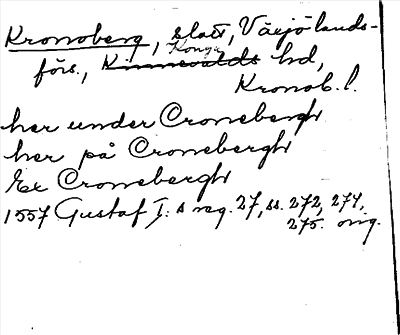 Kronoberg, slott, Växjö lands-
Konga
förs., Kinnevalds hd,
Kronob. l.
her under Cronebergh
her på Cronebergh
Ex Cronebergh
1557 Gustaf I:s reg. 27, ss. 272, 274,
275. orig.